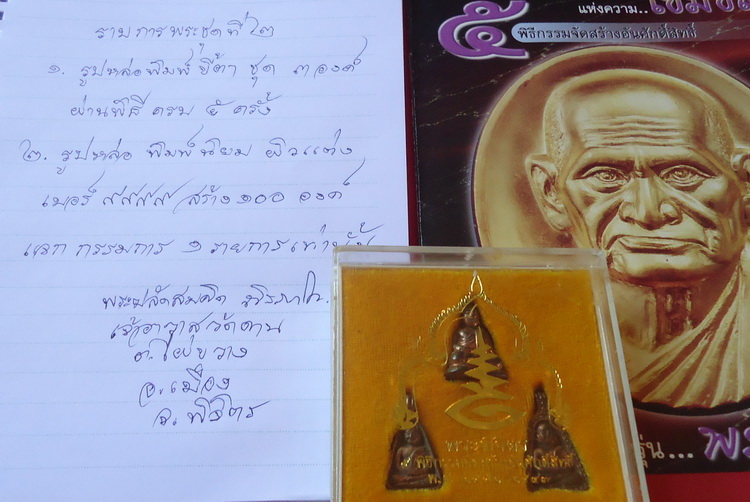 รายการพระชุดที่ ๒
๑. รูปหล่อพิมพ์ ขี้ตา ชุด ๓ องค์
ผ่านพิธี ครบ ๕ ครั้ง
๒. รูปหล่อ พิมพ์นิยม ผิวแต่ง
เบอร์ ๙๙๙๙ สร้าง ๑๐๐ องค์
แจก กรรมการ ๑ รายการเท่านั้น
พระปลัดสมคิด
เจ้าอาวาสวัดดาน
อ.เมือง
จ.พิจิตร
แห่งความ..
๕
พิธีกรรมจัดสร้างอันศักดิ์สิทธิ์
รุ่น...
พิธีกรรมอันศักดิ์สิทธิ์